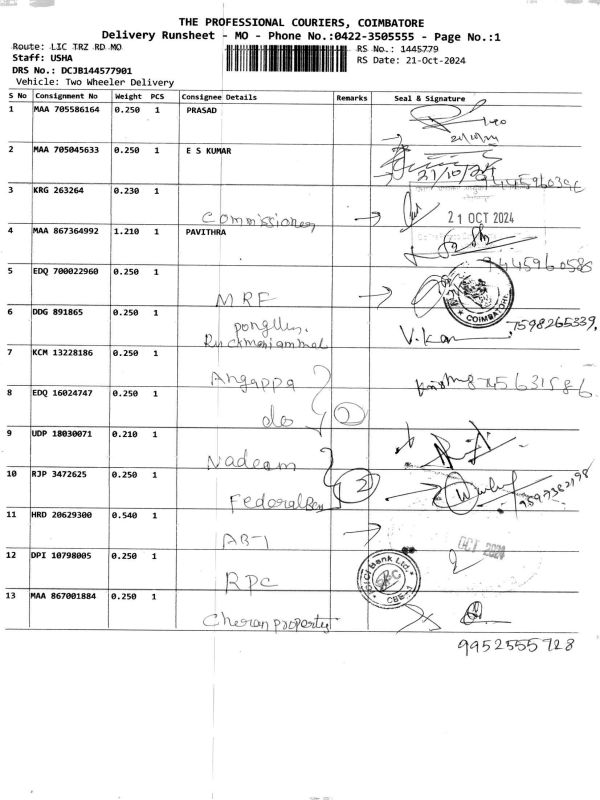 THE PROFESSIONAL COURIERS, COIMBATORE
Delivery Runsheet - MO - Phone No.:0422-3505555 - Page No.:1
Route: LIC TRZ RD MO
RS No.: 1445779
Staff: USHA
RS Date: 21-Oct-2024
DRS No.: DCJB144577901
Vehicle: Two Wheeler Delivery
S No Consignment No Weight PCS Consignee Details Remarks Seal & Signature
1 MAA 705586164 0.250 1 PRASAD
2 MAA 705045633 0.250 1 E S KUMAR
21/10/24
9445960396
3 KRG 263264 0.230 1
Commissioner 21 OCT 2024
4 MAA 867364992 1.210 1 PAVITHRA
9445960586
5 EDQ 700022960 0.250 1
MRF COIMBATORE
6 DDG 891865 0.250 1
Ruckmaniammal V.Kan 7598265339,
7 KCM 13228186 0.250 1
Angappa
8 EDQ 16024747 0.250 1
do 2
9 UDP 18030071 0.210 1
Nadeem
10 RJP 3472625 0.250 1
Federal Ban 2
11 HRD 20629300 0.540 1
AB-1 OCT 2024
12 DPI 10798005 0.250 1
RPC Bank Ltd. CBE-1
13 MAA 867001884 0.250 1
Cheran property
9952555728